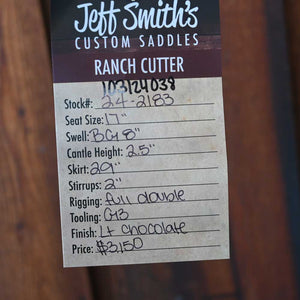 Jeff Smith's
CUSTOM SADDLES
RANCH CUTTER
103124038
Stock#: 24-2183
Seat Size: 17"
Swell: BG 8"
Cantle Height: 2.5"
Skirt: 29"
Stirrups: 2"
Rigging: full double
Tooling: G13
Finish: Lt chocolate
Price: $3,150